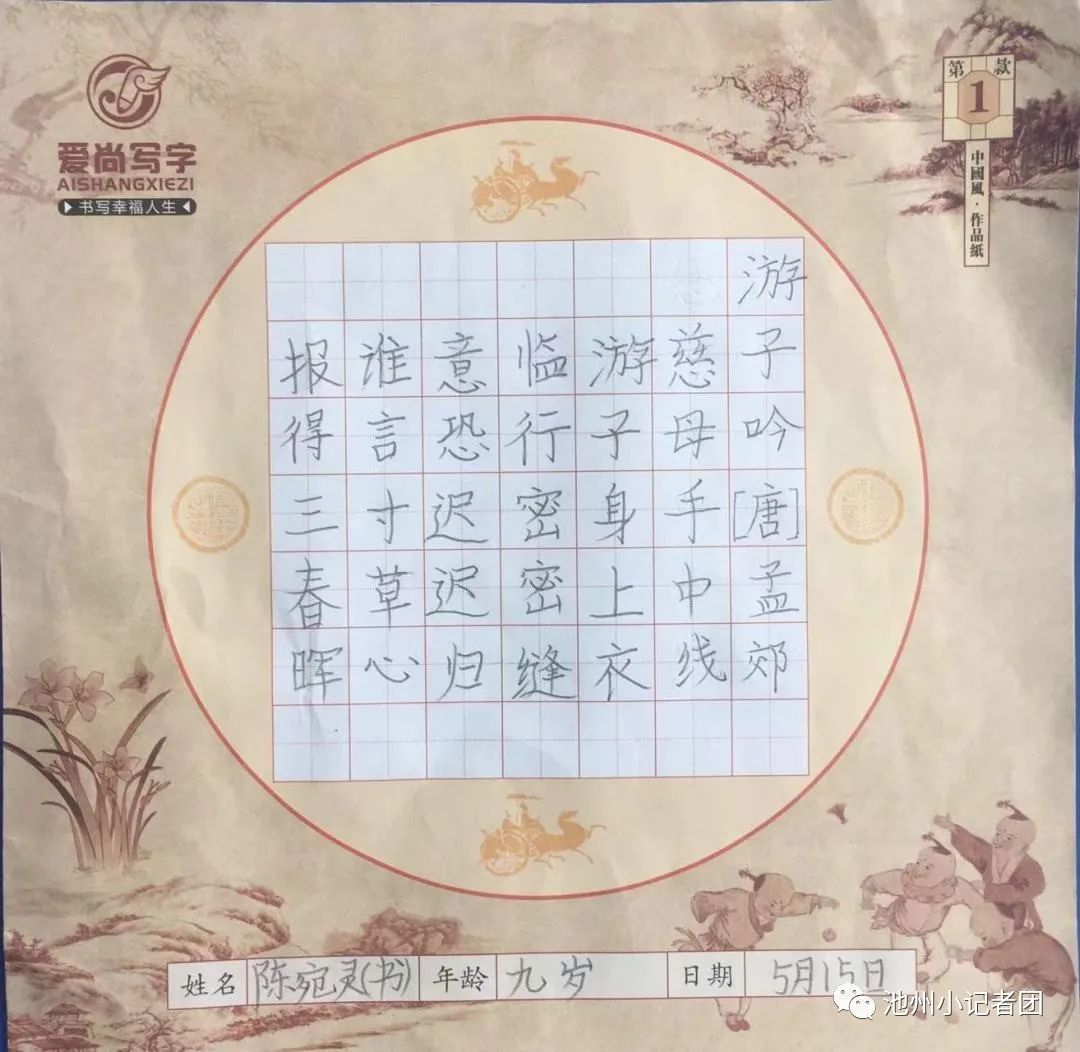 爱尚写字
AISHANGXIEZI
书写幸福人生
第1款
中國風·作品紙
游子吟[唐]孟郊
慈母手中线
游子身上衣
临行密密缝
意恐迟迟归
谁言寸草心
报得三春晖
姓名 陈宛灵(书) 年龄 九岁 日期 5月15日
池州小记者团